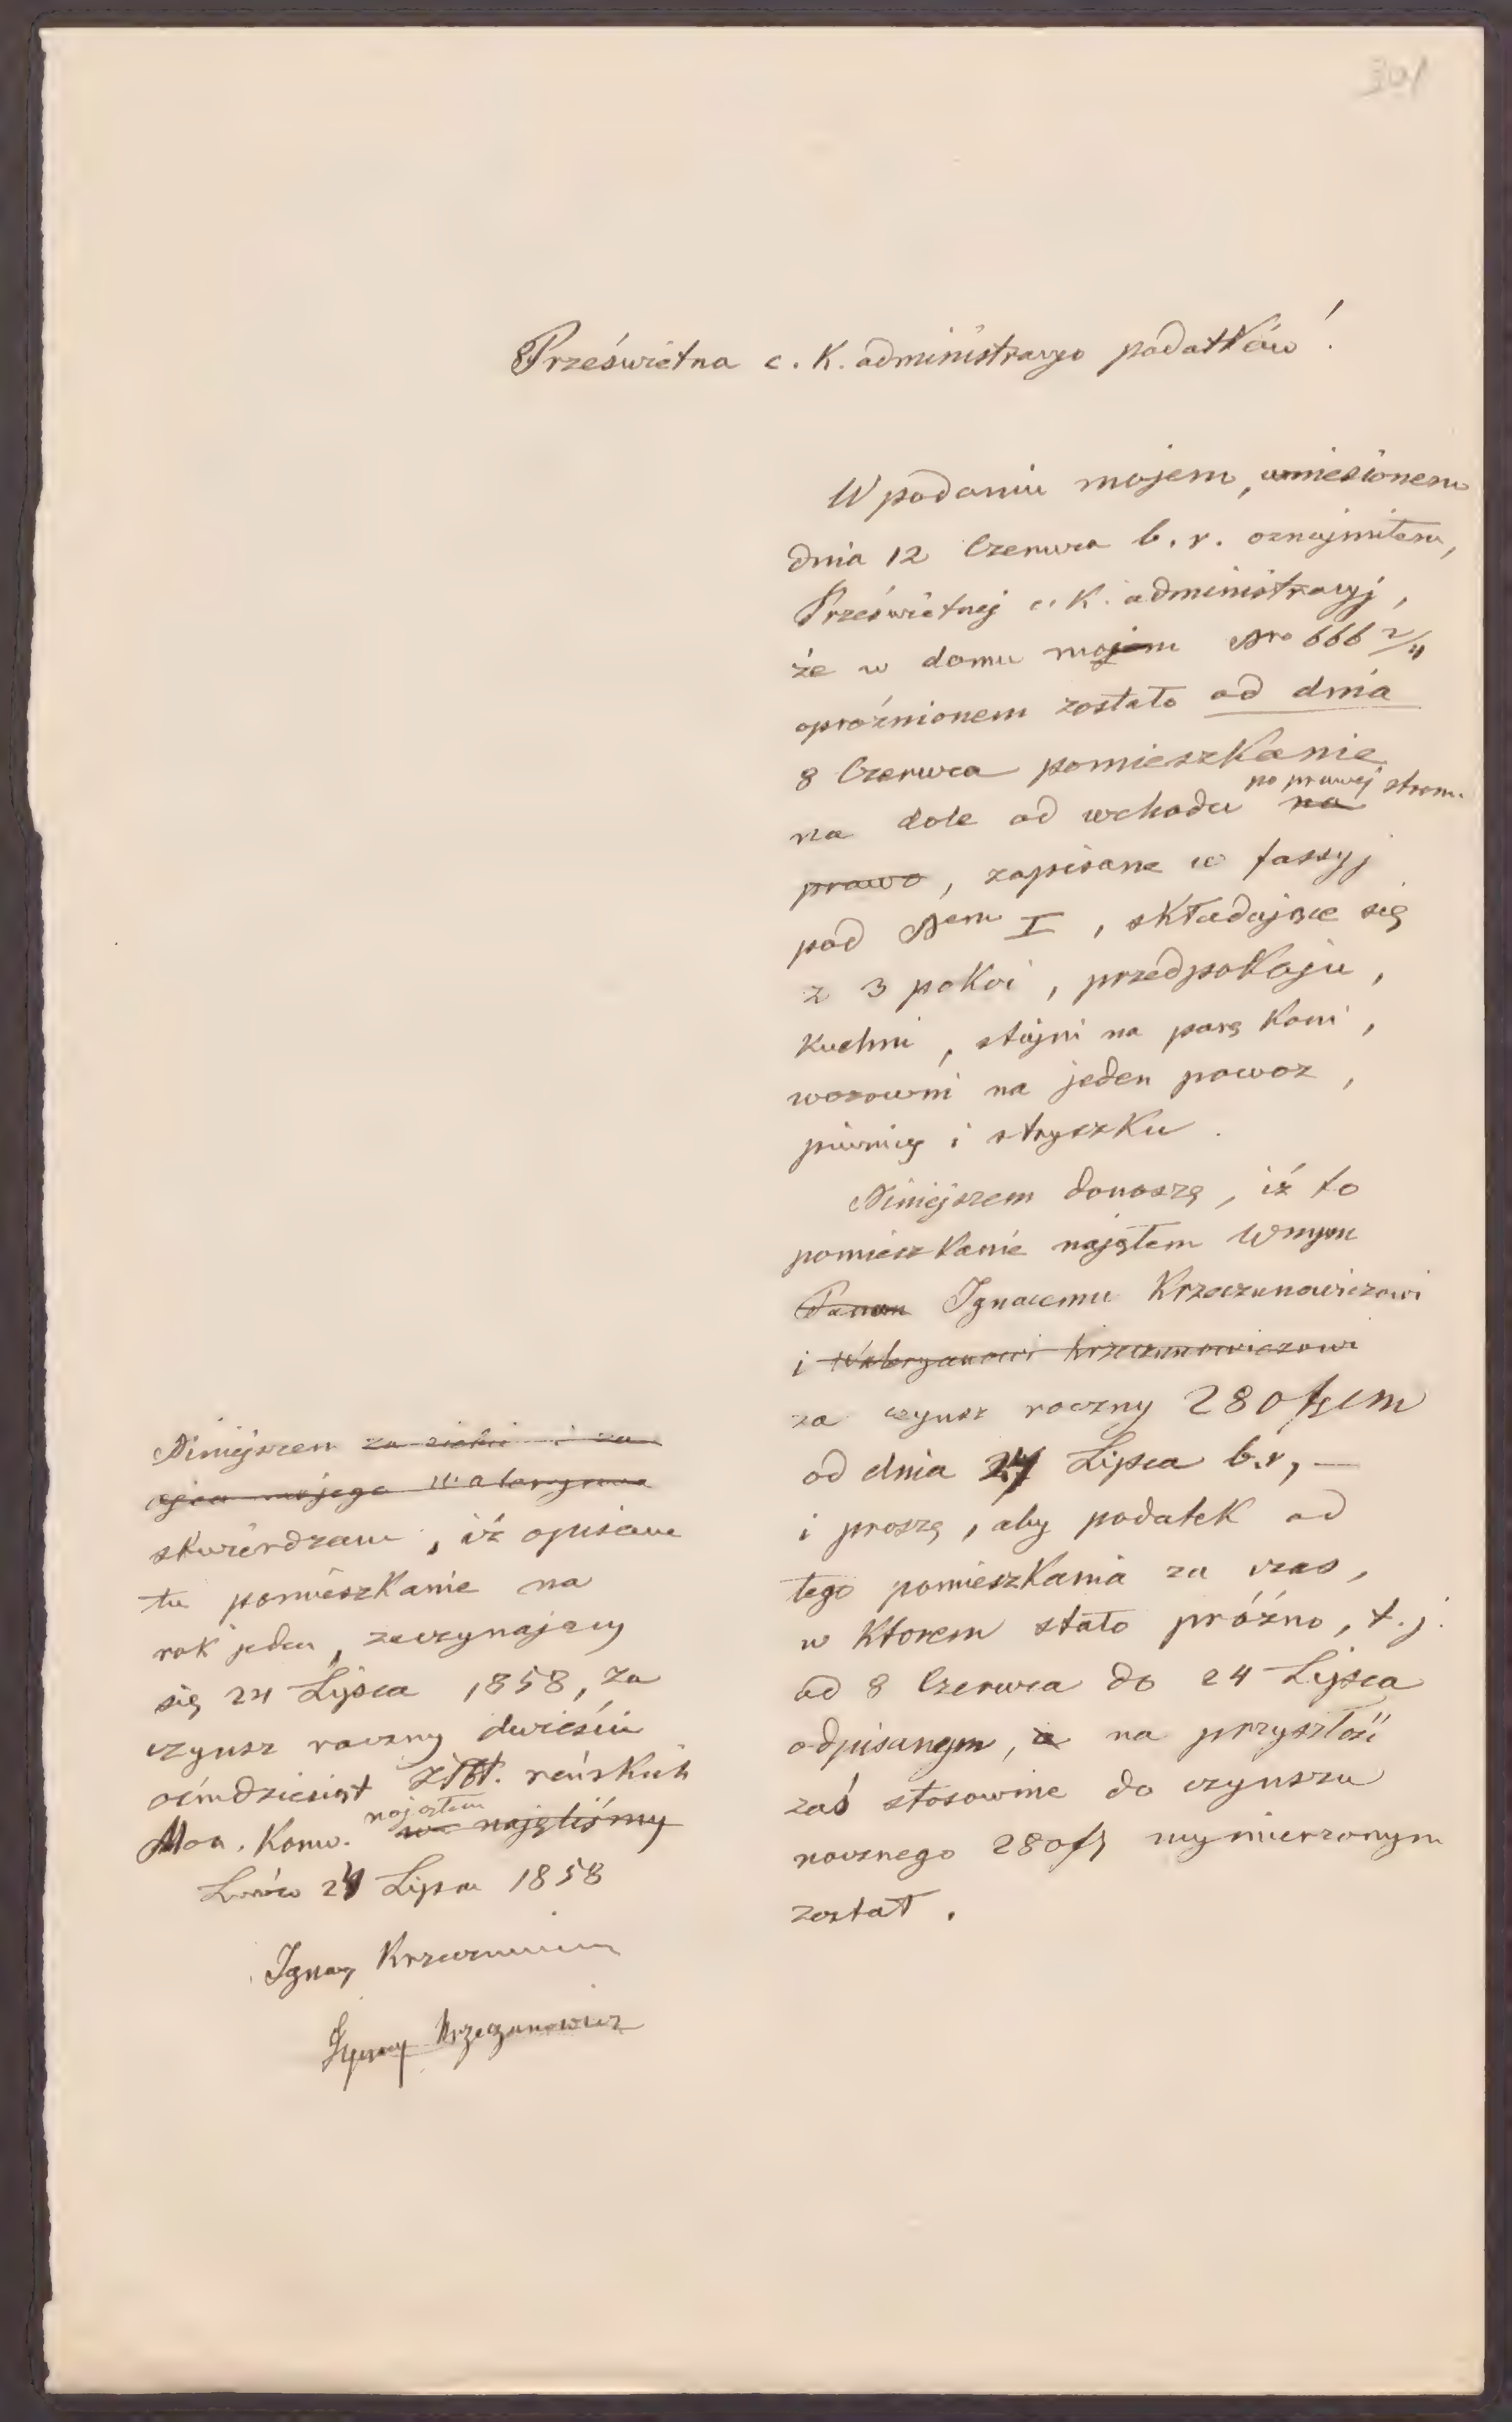 301
Prześwietna c. K. administracyo podatków!
W podaniu mojem, wniesionem
dnia 12 Czerwca b. r. oznajmiłem,
Prześwietnej c. K. administracyj,
że w domu mojem Nro 666 2/4
opróżnionem zostało od dnia
8 Czerwca pomieszkanie
na dole od wchodu na po prawej stronie
prawo, zapisane w fassyj
pod Nem I, składające się
z 3 pokoi, przedpokoju,
Kuchni, stajni na parę koni,
wozowni na jeden powoz,
piwnicy i stryszku.
Niniejszem donoszę, iż to
pomieszkanie nająłem Wnym
Panom Ignacemu Krzeczunowiczowi
i Waleryanowi Krzeczunowiczowi
za czynsz roczny 280 fr CM
od dnia 24 Lipca b.r, —
i proszę, aby podatek od
tego pomieszkania za czas,
w Ktorem stało próżno, t. j.
od 8 Czerwca do 24 Lipca
odpisanym, a na przyszłość
zaś stosownie do czynszu
rocznego 280 fr wymierzonym
został.
Niniejszem za siebie i za
ojca mojego Waleryana
stwierdzam, iż opisane
tu pomieszkanie na
rok jeden, zaczynający
się 24 Lipca 1858, za
czynsz roczny dwieście
ośmdziesiąt złot. reńskich
Mon. Konw. nająłem we najęliśmy
Lwów 24 Lipca 1858
Ignacy Krzeczunowicz
Ignacy Krzeczunowicz